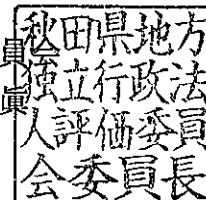 秋田県地方
独立行政法
人評価委員
会委員長